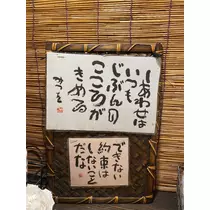 しあわせは
いつも
じぶんの
こころが
きめる
みつを
できない
約束は
しないこと
だな